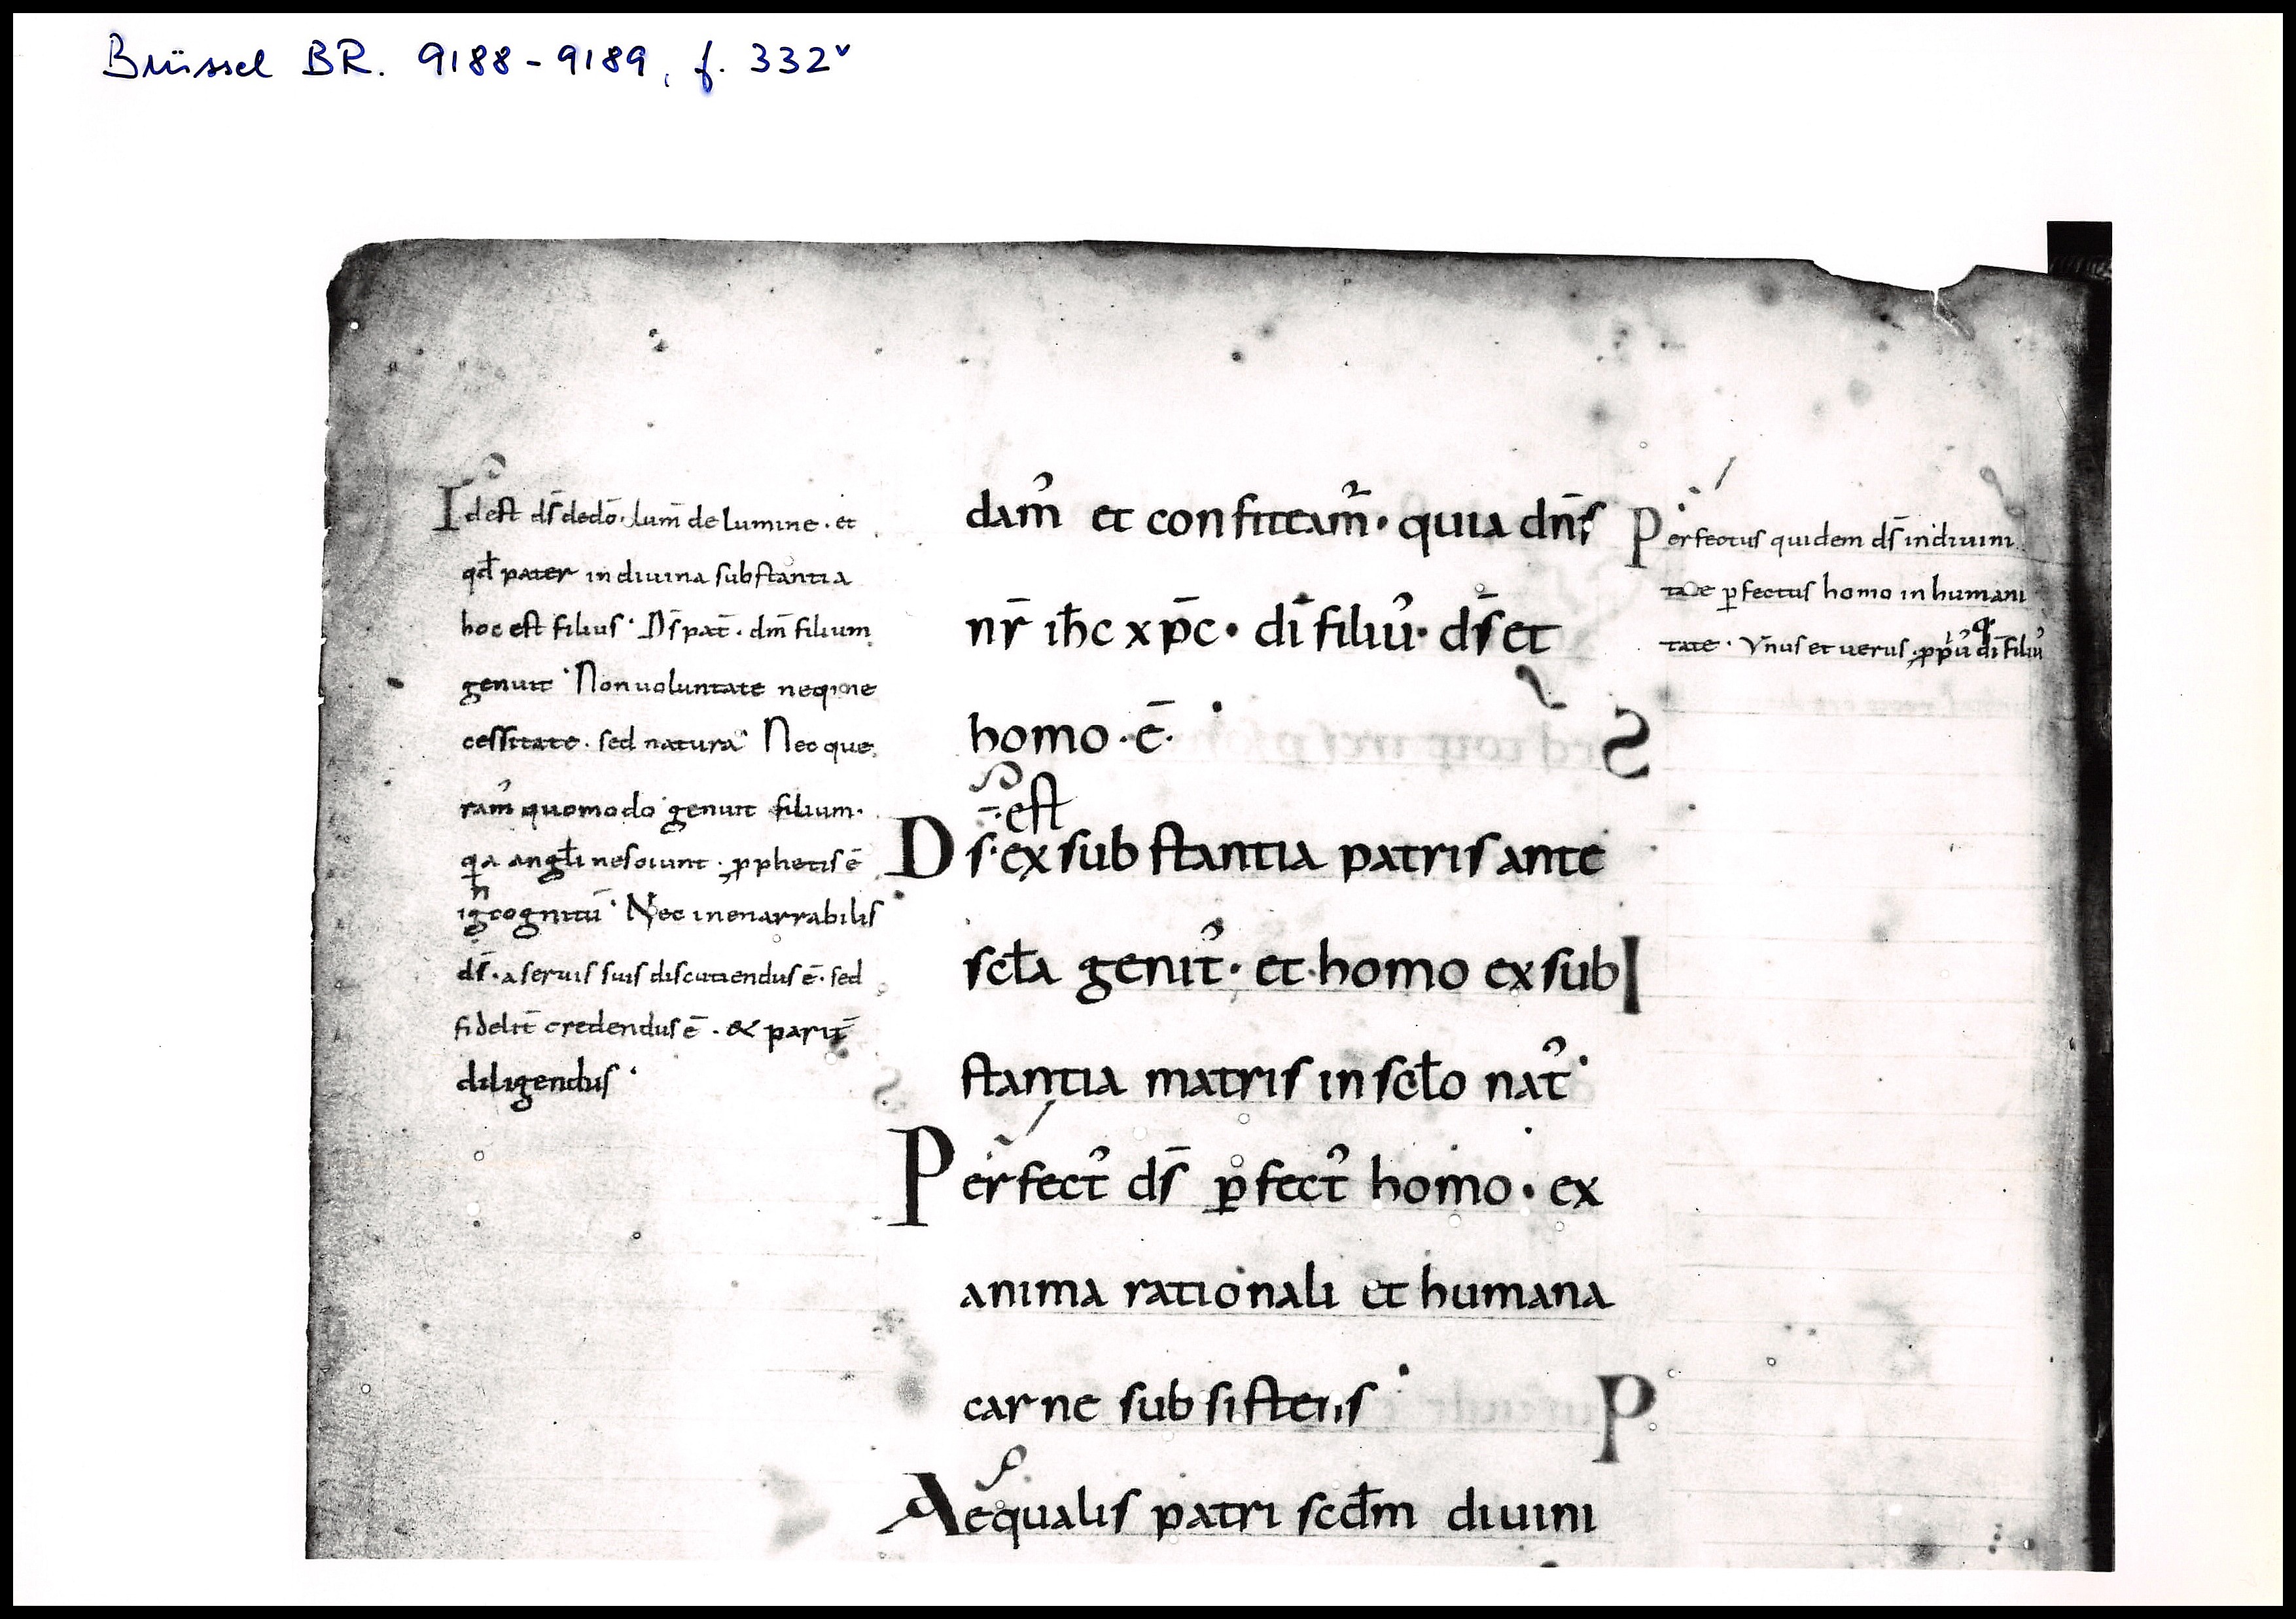 Brüssel BR. 9188-9189, f. 332v
Id est ds̄ dedō· lum̄ de lumine· et
qđ pater in diuina substantia
hoc est filius· Ds̄ pat̄· dm̄ filium
genuit· Non uoluntate neq; ne
cessitate· sed natura· Nec que
ram᾽ quomodo genuit filium·
qa angłi nesciunt· ꝓphetis ē
incognitū· Nec inenarrabilis
ds̄· a seruis suis discutiendus ē· sed
fidelit̄ credendus ē· & parit̄
diligendus·
dam᾽ et confiteam᾽· quia dn̄s
nr̄ ih̄c xp̄c· dī filiu᾽· ds̄ et
homo·ē·
est
Ds̄· ex substantia patris ante
scła genit᾽· et homo ex sub
stantia matris in scło nat᾽·
Perfect᾽ ds̄ ꝑfect᾽ homo· ex
anima rationali et humana
carne subsistens·
Aequalis patri scđm diuini
Perfectus quidem ds̄ in diuini
tate ꝑfectus homo in humani
tate· Vnus et uerus ꝓpiu᾽ dī filiu᾽